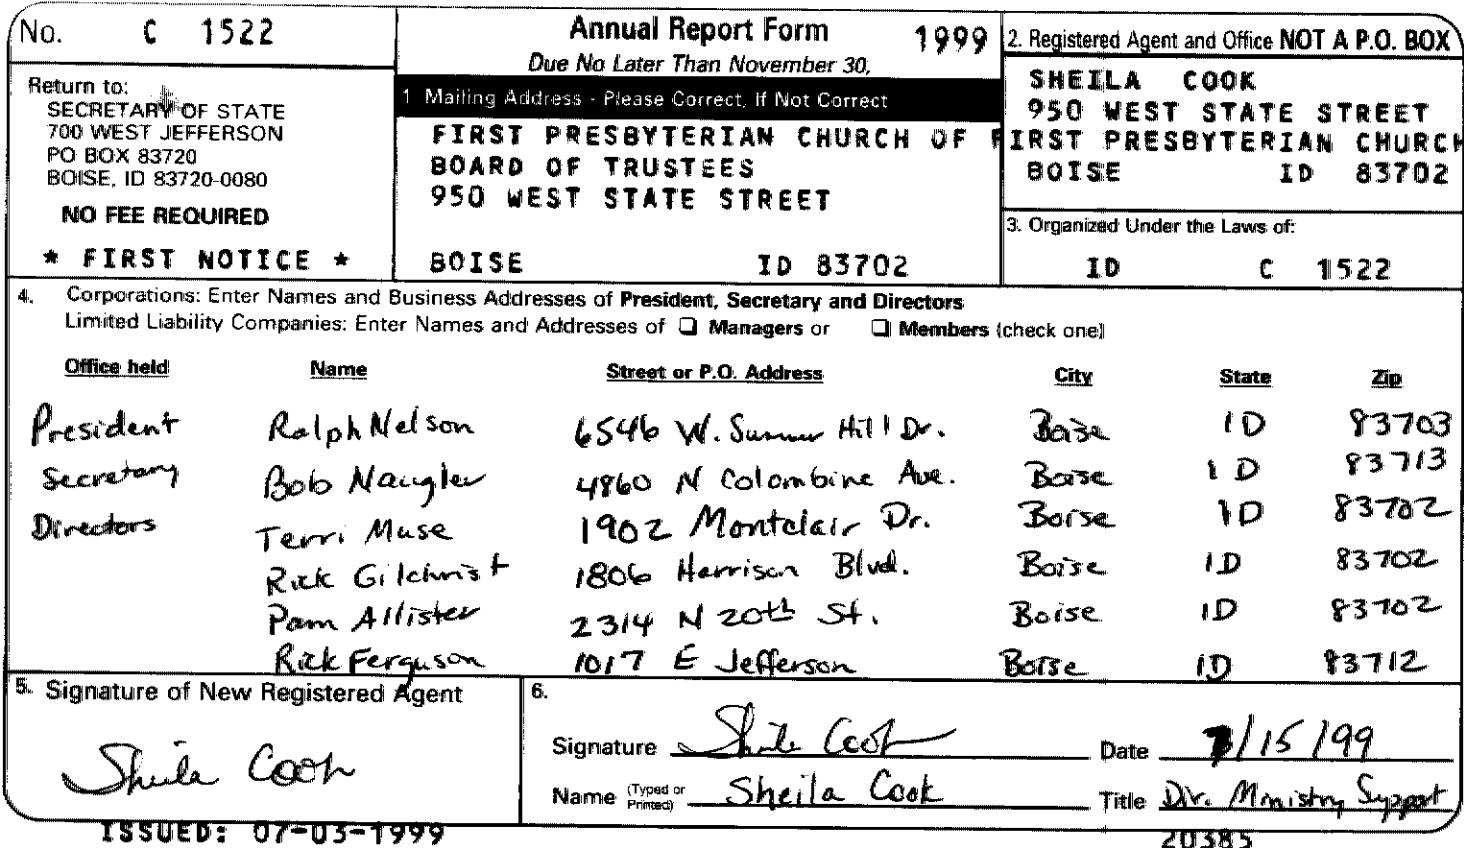 No. C 1522
Annual Report Form 1999
Due No Later Than November 30,
Return to:
SECRETARY OF STATE
700 WEST JEFFERSON
PO BOX 83720
BOISE, ID 83720-0080
NO FEE REQUIRED
* FIRST NOTICE *
1 Mailing Address - Please Correct, If Not Correct
FIRST PRESBYTERIAN CHURCH OF
BOARD OF TRUSTEES
950 WEST STATE STREET
BOISE ID 83702
2. Registered Agent and Office NOT A P.O. BOX
SHEILA COOK
950 WEST STATE STREET
FIRST PRESBYTERIAN CHURCH
BOISE ID 83702
3. Organized Under the Laws of:
ID C 1522
4. Corporations: Enter Names and Business Addresses of President, Secretary and Directors
Limited Liability Companies: Enter Names and Addresses of ❑ Managers or ❑ Members (check one)
Office held Name Street or P.O. Address City State Zip
President Ralph Nelson 6546 W. Summer Hill Dr. Boise ID 83703
Secretary Bob Naugler 4860 N Colombine Ave. Boise ID 83713
Directors Terri Muse 1902 Montclair Dr. Boise ID 83702
Rick Gilchrist 1806 Harrison Blvd. Boise ID 83702
Pam Allister 2314 N 20th St. Boise ID 83702
Rick Ferguson 1017 E Jefferson Boise ID 83712
5. Signature of New Registered Agent
Sheila Cook
6.
Signature Sheila Cook Date 7/15/99
Name (Typed or Printed) Sheila Cook Title Dir. Ministry Support
ISSUED: 07-03-1999
20385